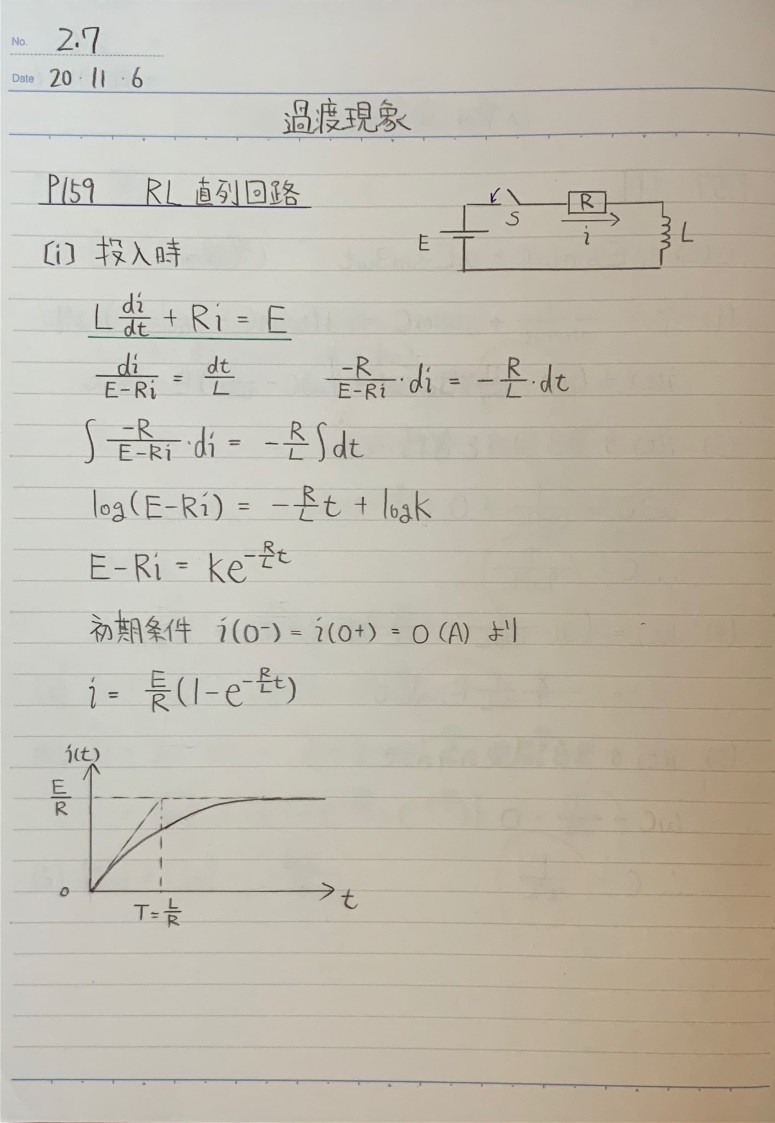 No. 2.7
Date 20・11・6
過渡現象
P159 RL 直列回路
E S R i L
〔i〕 投入時
L di/dt + Ri = E
di/(E-Ri) = dt/L -R/(E-Ri)・di = -R/L・dt
∫ -R/(E-Ri)・di = -R/L ∫dt
log(E-Ri) = -R/L t + logk
E-Ri = ke^(-R/L t)
初期条件 i(0-) = i(0+) = 0 (A) より
i = E/R (1-e^(-R/L t))
i(t)
E/R
0
t
T = L/R